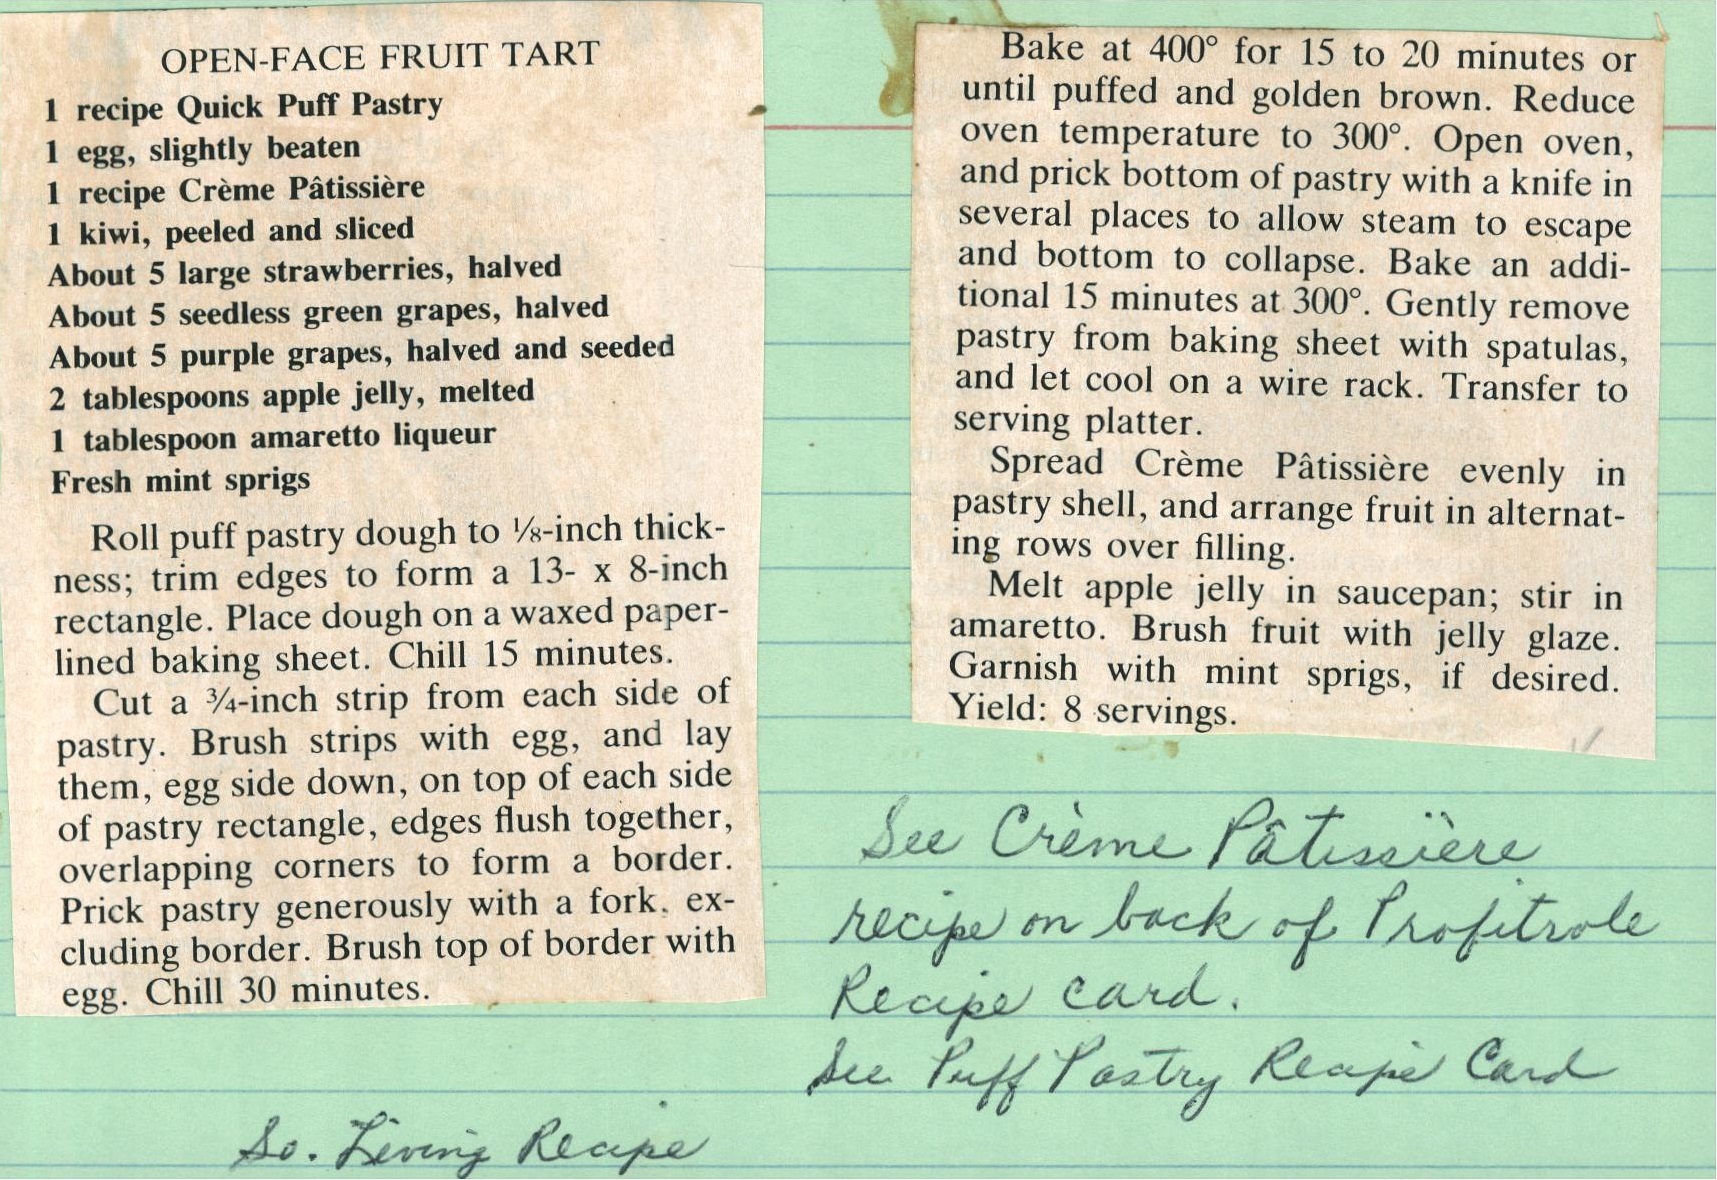 OPEN-FACE FRUIT TART
1 recipe Quick Puff Pastry
1 egg, slightly beaten
1 recipe Crème Pâtissière
1 kiwi, peeled and sliced
About 5 large strawberries, halved
About 5 seedless green grapes, halved
About 5 purple grapes, halved and seeded
2 tablespoons apple jelly, melted
1 tablespoon amaretto liqueur
Fresh mint sprigs
Roll puff pastry dough to ⅛-inch thick-
ness; trim edges to form a 13- x 8-inch
rectangle. Place dough on a waxed paper-
lined baking sheet. Chill 15 minutes.
Cut a ¾-inch strip from each side of
pastry. Brush strips with egg, and lay
them, egg side down, on top of each side
of pastry rectangle, edges flush together,
overlapping corners to form a border.
Prick pastry generously with a fork, ex-
cluding border. Brush top of border with
egg. Chill 30 minutes.
Bake at 400° for 15 to 20 minutes or
until puffed and golden brown. Reduce
oven temperature to 300°. Open oven,
and prick bottom of pastry with a knife in
several places to allow steam to escape
and bottom to collapse. Bake an addi-
tional 15 minutes at 300°. Gently remove
pastry from baking sheet with spatulas,
and let cool on a wire rack. Transfer to
serving platter.
Spread Crème Pâtissière evenly in
pastry shell, and arrange fruit in alternat-
ing rows over filling.
Melt apple jelly in saucepan; stir in
amaretto. Brush fruit with jelly glaze.
Garnish with mint sprigs, if desired.
Yield: 8 servings.
See Crème Pâtissière
recipe on back of Profitrole
Recipe card.
See Puff Pastry Recipe Card
So. Living Recipe